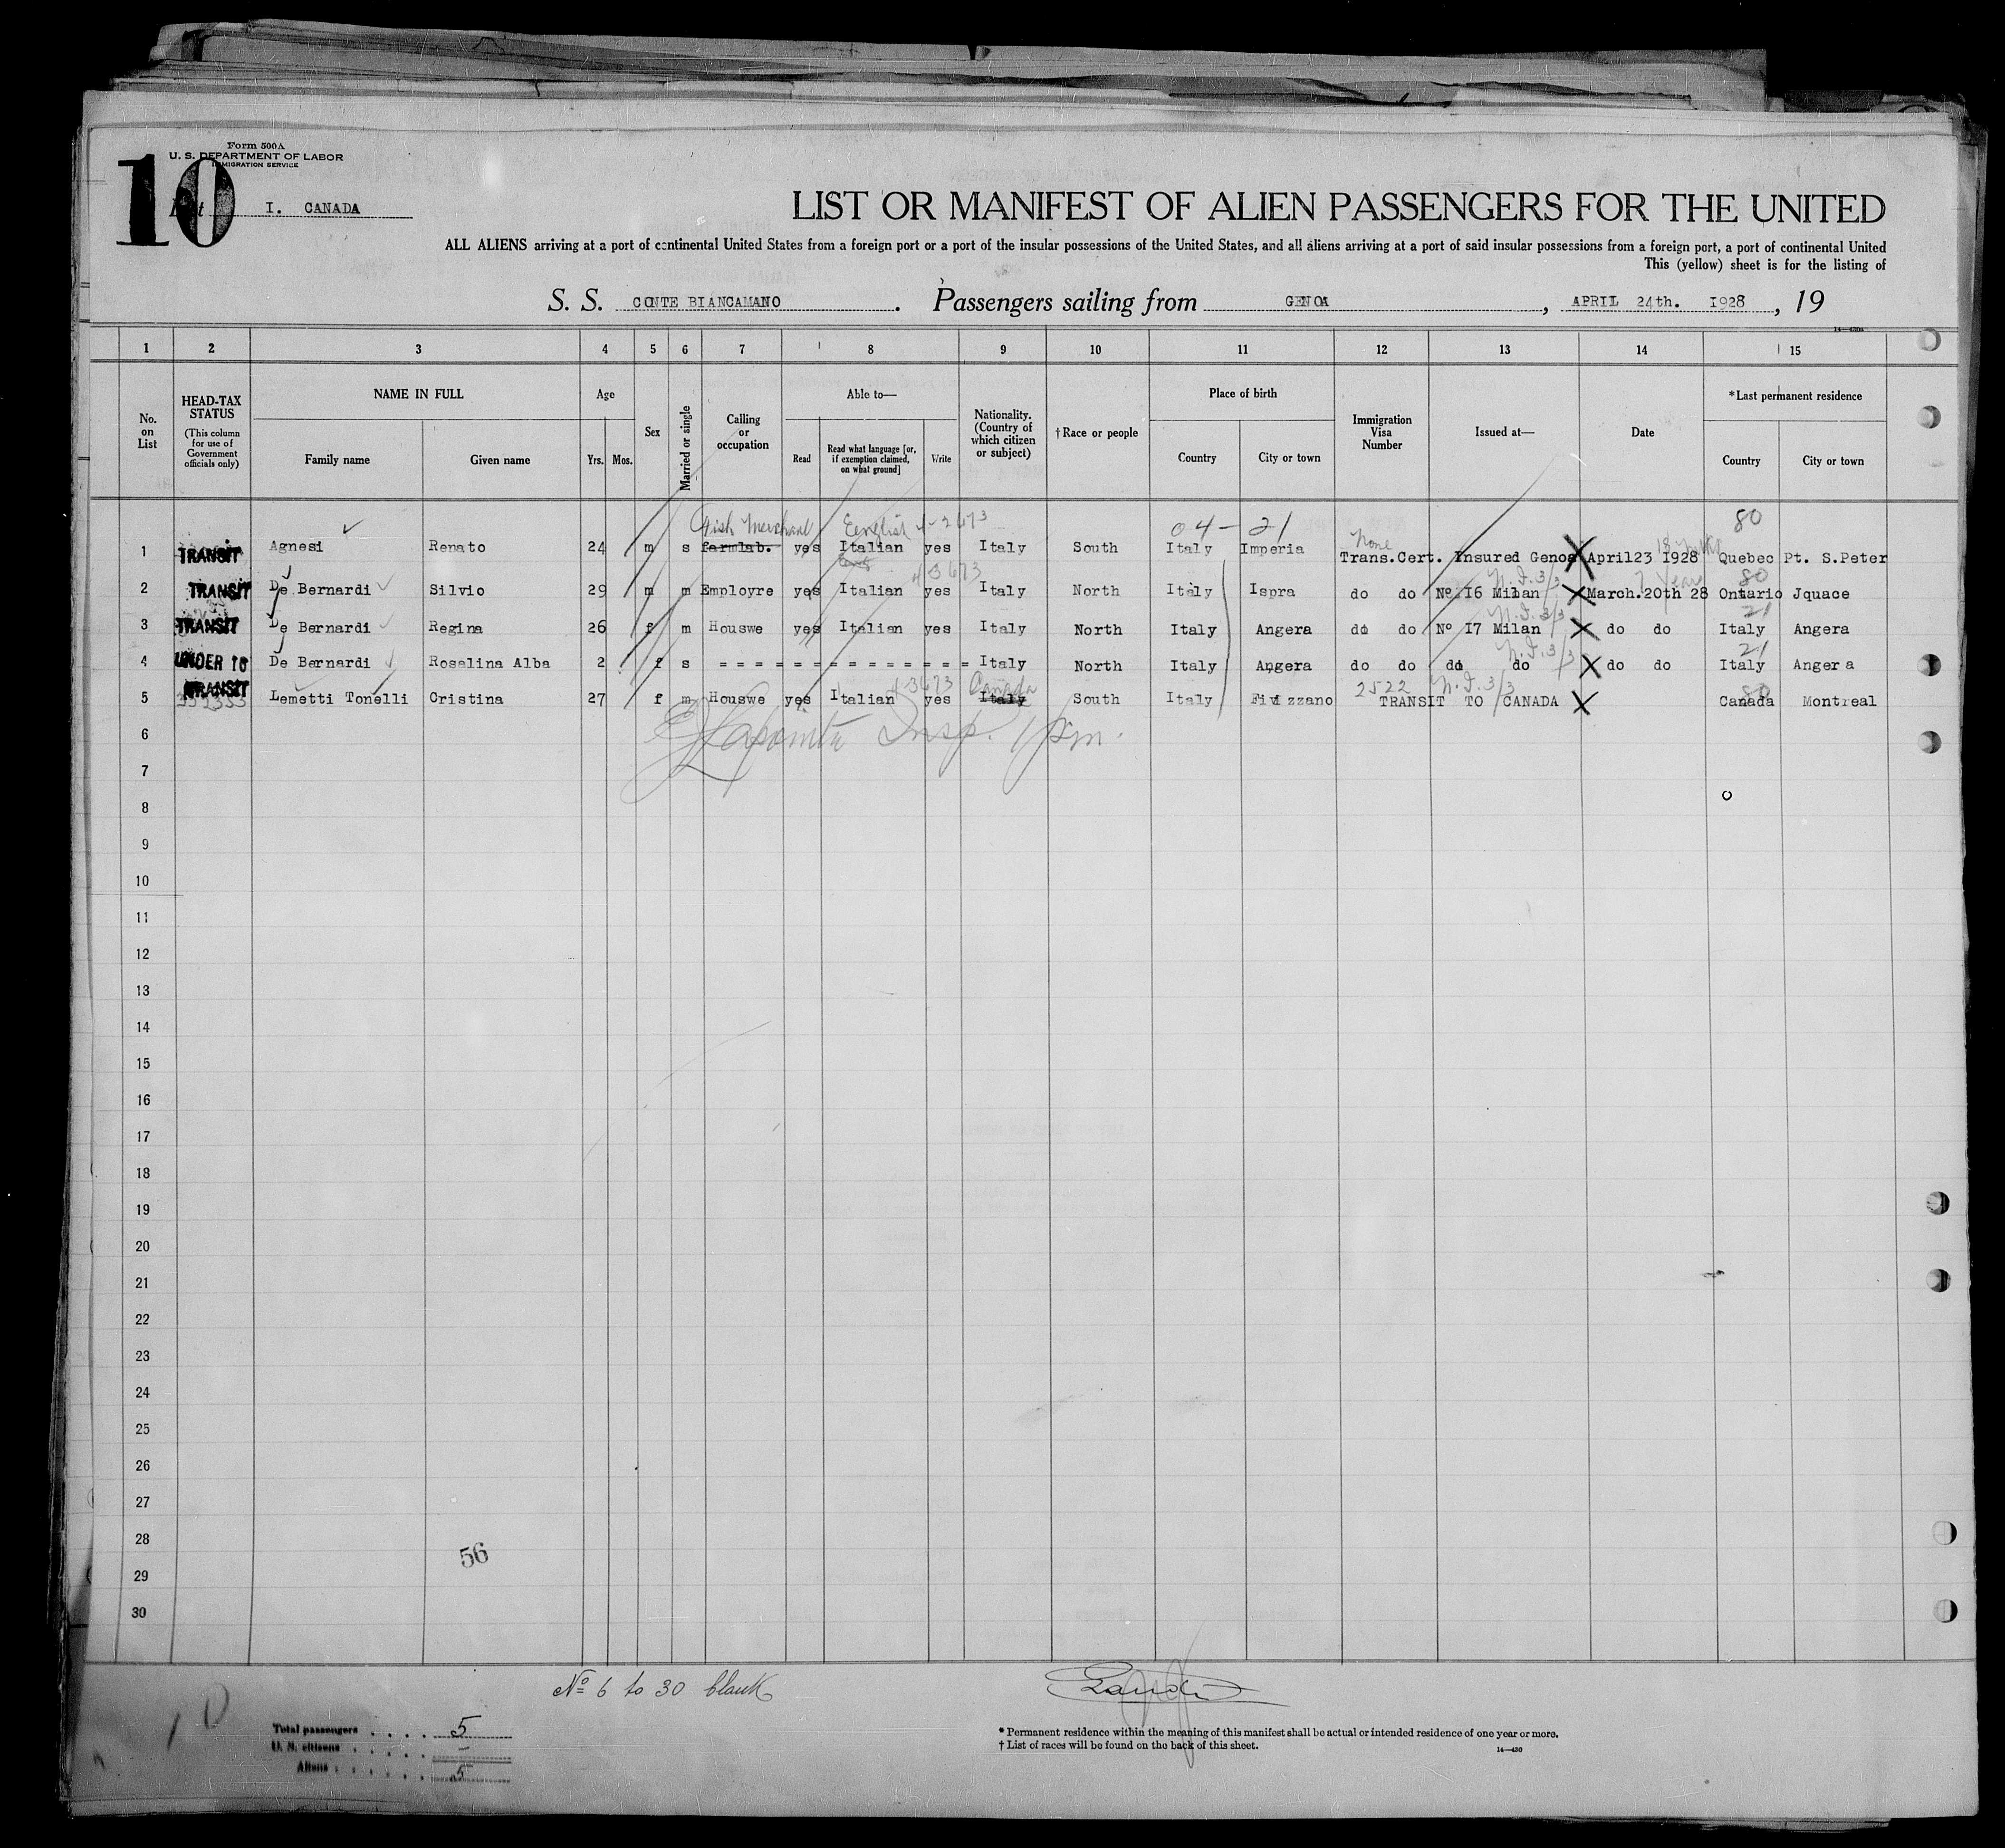 Form 500A
U. S. DEPARTMENT OF LABOR
IMMIGRATION SERVICE
10
List I. CANADA
LIST OR MANIFEST OF ALIEN PASSENGERS FOR THE UNITED
ALL ALIENS arriving at a port of continental United States from a foreign port or a port of the insular possessions of the United States, and all aliens arriving at a port of said insular possessions from a foreign port, a port of continental United
This (yellow) sheet is for the listing of
S. S. CONTE BIANCAMANO. Passengers sailing from GENOA, APRIL 24th. 1928, 19
1 2 3 4 5 6 7 8 9 10 11 12 13 14 15
No. on List
HEAD-TAX STATUS (This column for use of Government officials only)
NAME IN FULL
Family name Given name
Age
Yrs. Mos.
Sex
Married or single
Calling or occupation
Able to—
Read Read what language [or, if exemption claimed, on what ground] Write
Nationality. (Country of which citizen or subject)
†Race or people
Place of birth
Country City or town
Immigration Visa Number
Issued at—
Date
*Last permanent residence
Country City or town
Fish Merchant English 4-2673 04-21 None 80
1 TRANSIT Agnesi Renato 24 m s farmlab. yes Italian yes Italy South Italy Imperia Trans.Cert. Insured Genoa April23 1928 Quebec Pt. S.Peter
4 3673 N.I.3/3 80
2 TRANSIT De Bernardi Silvio 29 m m Employre yes Italian yes Italy North Italy Ispra do do Nº 16 Milan March.20th 28 Ontario Jquace
N.I.3/3 21
3 TRANSIT De Bernardi Regina 26 f m Houswe yes Italian yes Italy North Italy Angera do do Nº 17 Milan do do Italy Angera
N.I.3/3 21
4 UNDER 16 De Bernardi Rosalina Alba 2 f s = = = = = = = = = = = = = Italy North Italy Angera do do do do do do Italy Angera
4-3673 Canada 2522 N.I.3/3 80
5 TRANSIT Lemetti Tonelli Cristina 27 f m Houswe yes Italian yes Italy South Italy Fivizzano TRANSIT TO CANADA Canada Montreal
6
7
8
9
10
11
12
13
14
15
16
17
18
19
20
21
22
23
24
25
26
27
28
56
29
30
Nº 6 to 30 blank
10
Total passengers . . . . 5
U. S. citizens . . . . . –
Aliens . . . . . . 5
* Permanent residence within the meaning of this manifest shall be actual or intended residence of one year or more.
† List of races will be found on the back of this sheet.
14—430